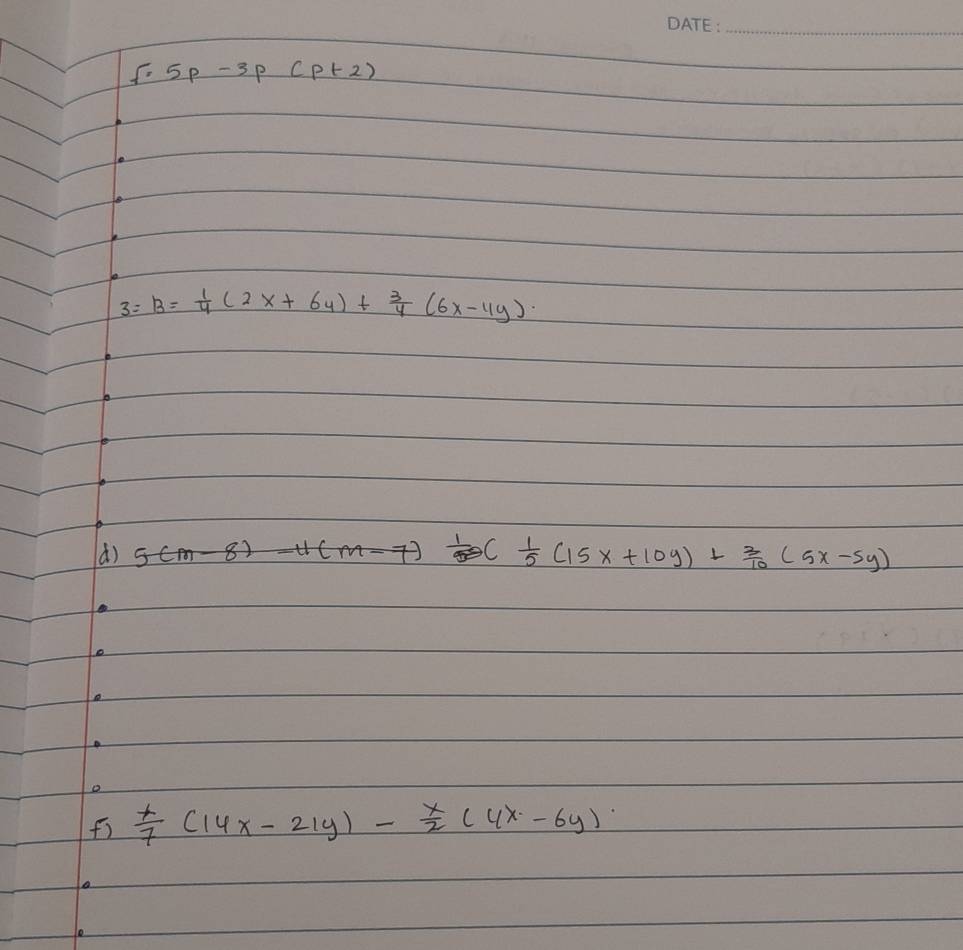 DATE :
f. 5p - 3p (p+2)
3 = B = 1/4 (2x + 6y) + 3/4 (6x - 4y).
d) 5(m - 8) - 4(m - 7) ( 1/5 (15x + 10y) + 3/10 (5x - 5y)
f) x/7 (14x - 21y) - x/2 (4x - 6y).